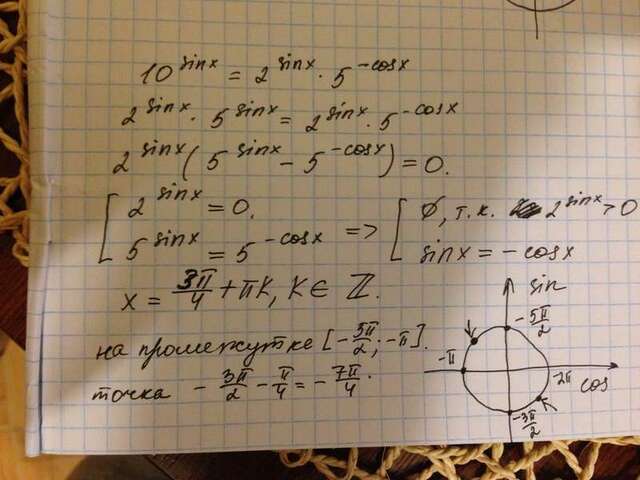 10^sinx = 2^sinx · 5^-cosx
2^sinx · 5^sinx = 2^sinx · 5^-cosx
2^sinx (5^sinx - 5^-cosx) = 0.
[ 2^sinx = 0. => [ ∅, т.к. 2^sinx > 0
5^sinx = 5^-cosx sinx = -cosx
x = 3π/4 + πK, K ∈ ℤ.
на промежутке [-5π/2; -π].
точка - 3π/2 - π/4 = - 7π/4.
sin
-5π/2
-π
-2π
cos
-3π/2